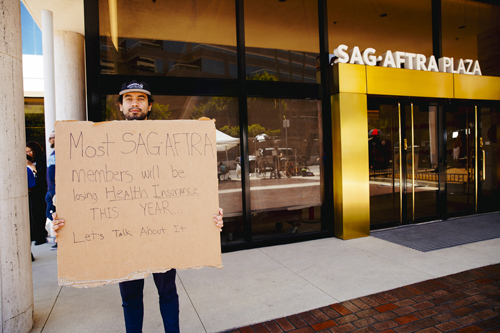 SAG·AFTRA PLAZA
Most SAG AFTRA
members will be
losing Health Insurance
THIS YEAR...
Let's Talk About It